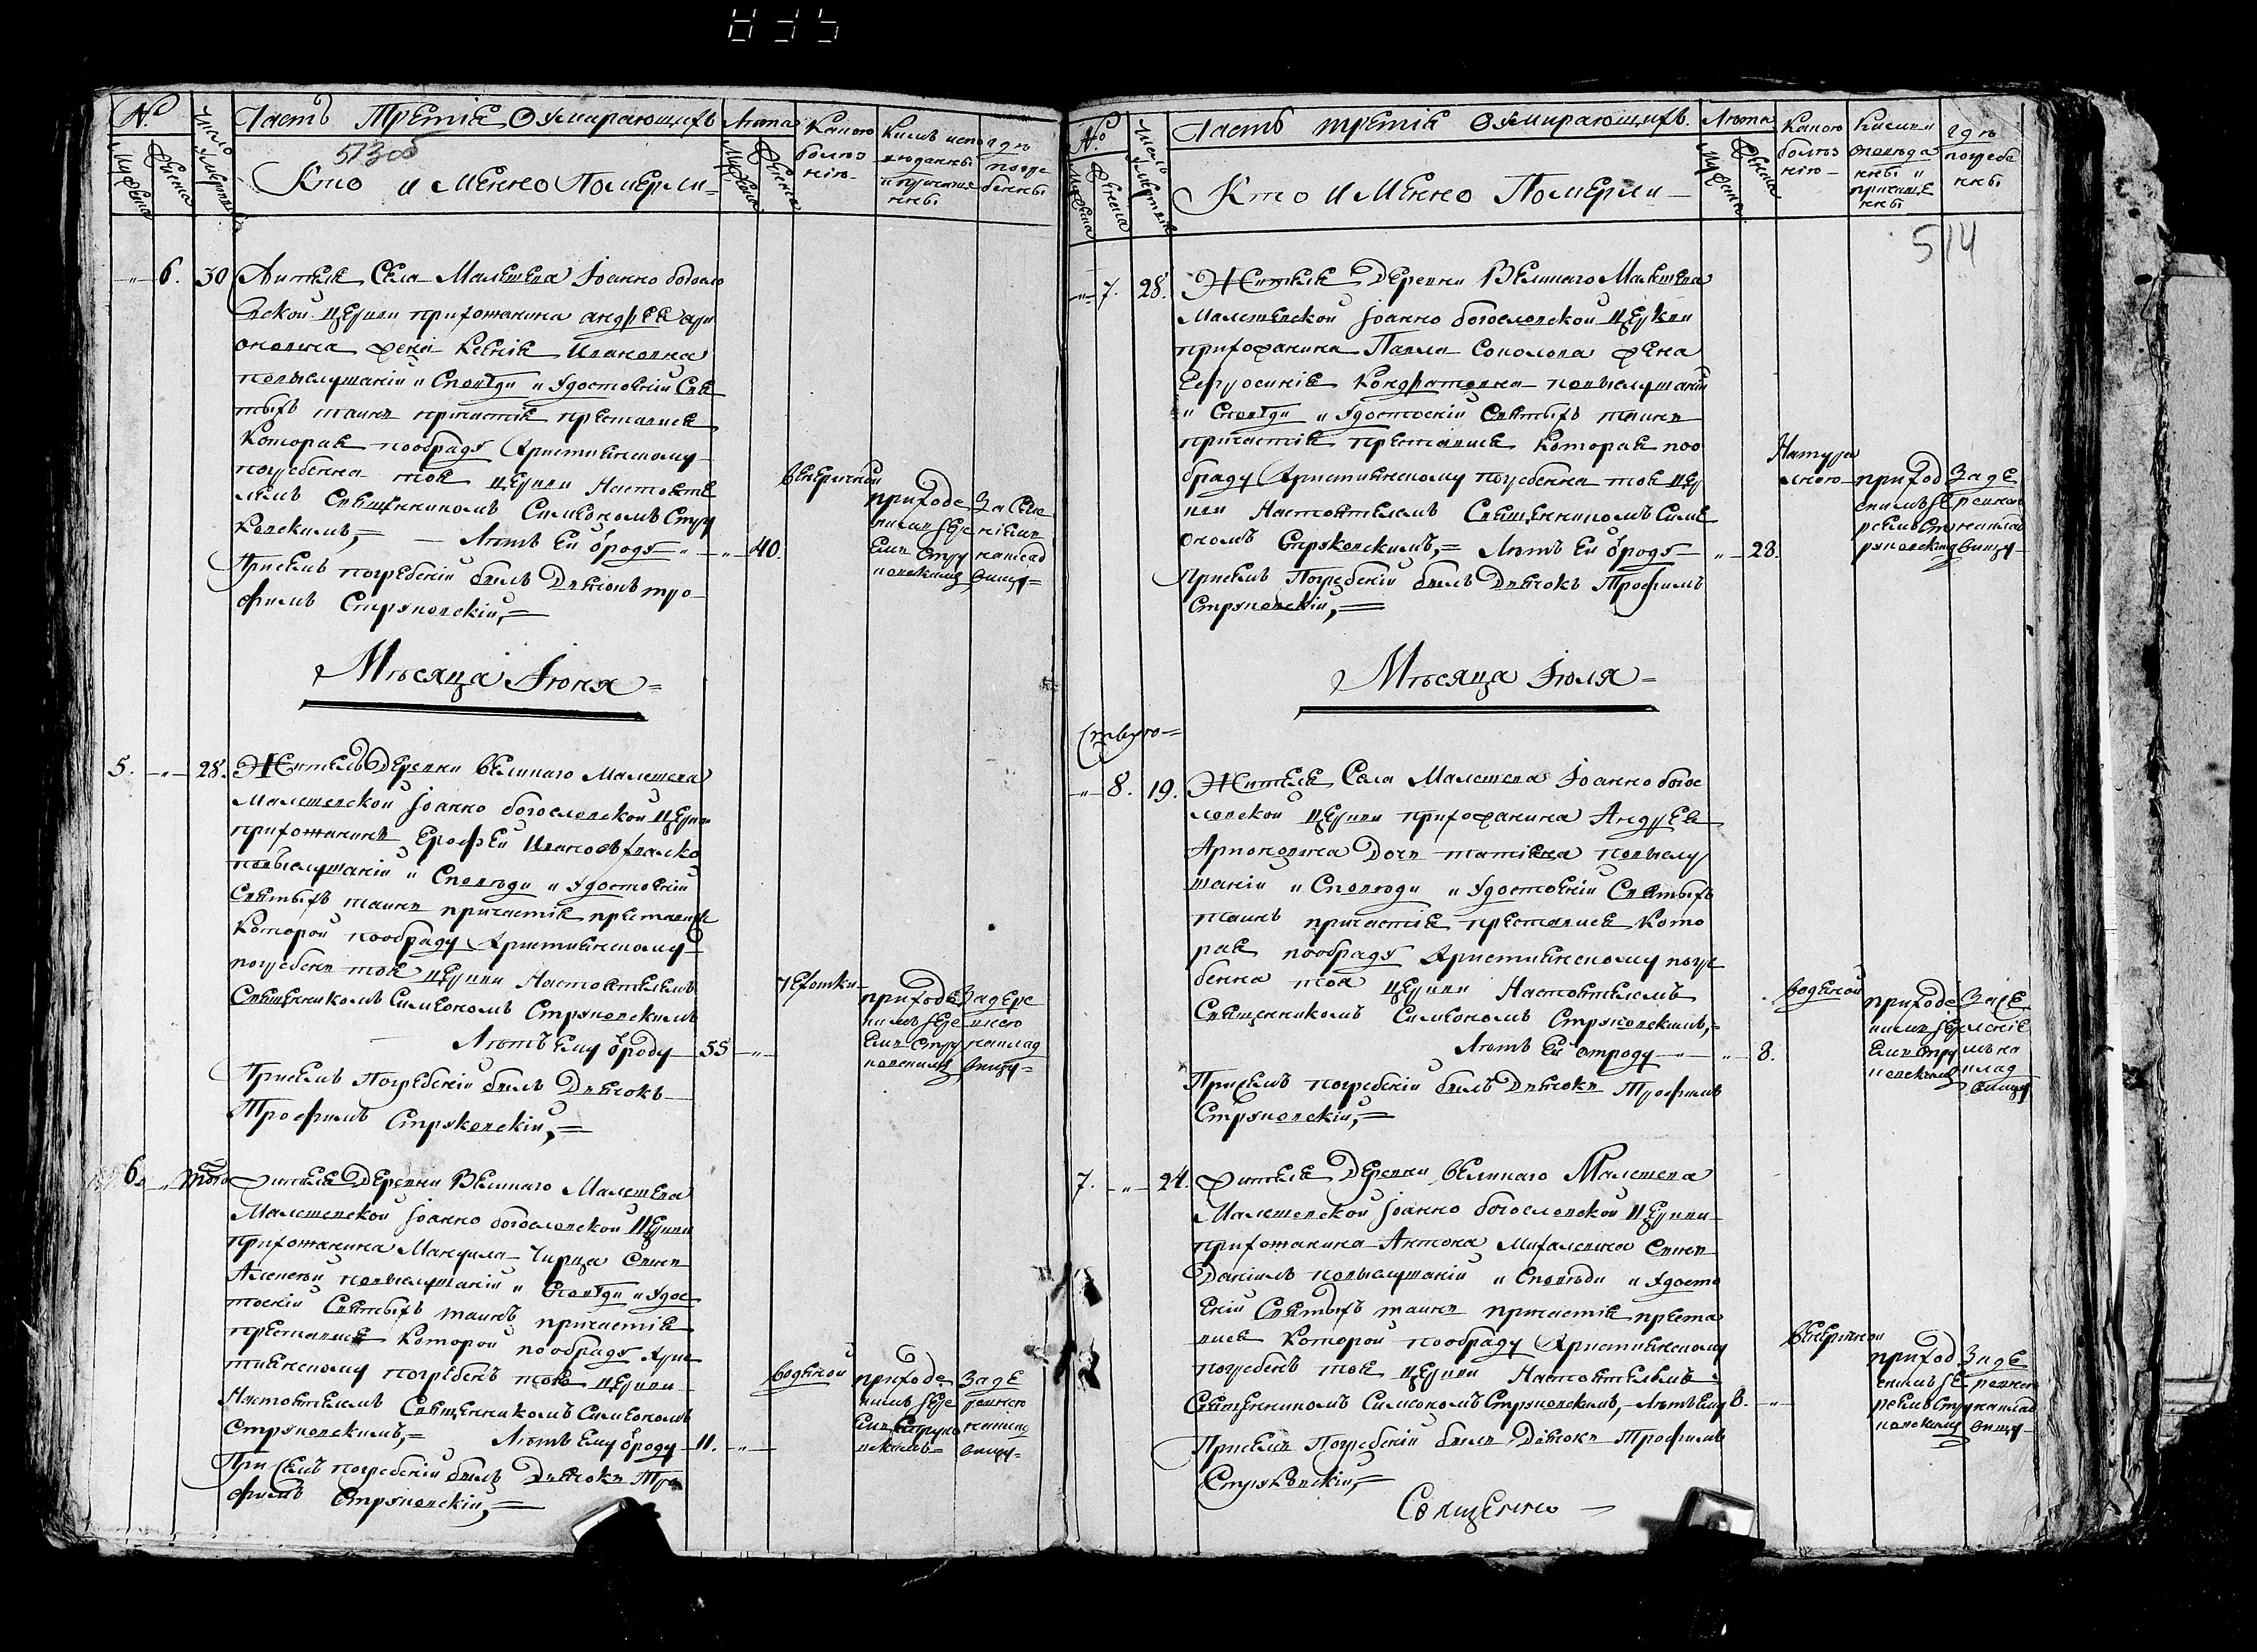 №
Мужеска
Женска
Число умертвія
Часть Третія О умирающихъ
573 об
Кто и менно Померли
Лѣта
Мужеска
Женска
Какою болез нію
Кимъ испо веданны и прич
Гдѣ погре бенны
„ 6. 30
Жителя Села Малешева Іоанно богосло
вской церкви прихожанина андрея ари
оновича жена Ксенія Ивановна
повыслушаніи и Сповѣди и Удостоеніи Свя
тыхъ таинъ причастія преставися
Которая пообряду Християнскому
погребенна тоя церкви Настояте
лемъ Священникомъ Симеономъ Стру
ковскимъ, Лѣтъ Ей о͞роду „ 40.
Присемъ погребеніи былъ Дьячокъ тро
фимъ Струковскій,
венеричной
приходскимъ Іерееемъ Струковскимъ
За Селеніемъ на кладвищу
Мѣсяца Іюня
5. „ 28.
Житель Деревни великаго Малешева
Малешевской Іоанно богословской церкви
прихожанинъ Ерофей Ивановъ
повыслушаніи и Сповѣди и Удостоеніи
Святыхъ таинъ причастія преставися
Которой пообряду Християнскому
погребенъ тоя церкви Настоятелемъ
Священникомъ Симеономъ Струковскимъ
Лѣтъ Ему о͞роду 55 „
Присемъ Погребеніи былъ Дьячокъ
Трофимъ Струковскій,
чехотки
приходскимъ Іереемъ Струковскимъ
За деревнею на кладвищу
6. „ того
Жителя Деревни Великаго Малешева
Малешевской Іоанно богословской Церкви
прихожанина Мануила Чирца Сынъ
Алексей повыслушаніи и Сповѣди и Удос
тоеніи Святыхъ таинъ причастія
преставися Которой пообряду Хрис
тиянскому погребенъ тоя церкви
Настоятелемъ Священникомъ Симеономъ
Струковскимъ, Лѣтъ Ему о͞роду 11. „
Присемъ погребеніи былъ Дьячокъ Тро
фимъ Струковскій,
водяной
приходскимъ Іереемъ Струковскимъ
За деревнею на кладвищу
№
Мужеска
Женска
Число умертвія
Часть третія О умирающихъ.
Кто И Менно Померли
Лѣта
Мужеска
Женска
Какою болез нію
Кимъ исповѣданны и причащенны
Гдѣ погребенны
514
„ 7. 28.
Жителя Деревни Великаго Малешева
Малешевской Іоанно богословской церкви
прихожанина Павла Соколова жена
Ефросинія Кондратовна повыслушаніи
и Сповѣди и Удостоеніи Святыхъ таинъ
причастія преставися Которая поо
бряду Християнскому погребенна тоя цер
кви Настоятелемъ Священникомъ Симе
ономъ Струковскимъ, Лѣтъ Ей о͞роду „ 28.
Присемъ Погребеніи былъ Дьячокъ Трофимъ
Струковскій,
Натуралною
приходскимъ Іереемъ Струковскимъ
За деревнею на кладвищу
Мѣсяца Іюля
„ 8. 19.
Жителя Села Малешева Іоанно богос
ловской церкви прихожанина Андрея
Арионовича Дочь татіяна повыслу
шаніи и Сповѣди и Удостоеніи Святыхъ
таинъ причастія преставися Кото
рая пообряду Християнскому погре
бенна тоя церкви Настоятелемъ
Священникомъ Симеономъ Струковскимъ,
Лѣтъ Ей отроду „ 8.
Присемъ погребеніи былъ Дьячокъ Трофимъ
Струковскій,
водяной
приходскимъ Іереемъ Струковскимъ
За Селеніемъ на кладвищу
7. „ 24.
Жителя Деревни великаго Малешева
Малешевской Іоанно богословской Церкви
прихожанина Антона Михалевича Сынъ
Даніилъ повыслушаніи и Сповѣди и Удосто
еніи Святыхъ таинъ причастія преста
вися Которой пообряду Християнскому
погребенъ тоя церкви Настоятелемъ
Священникомъ Симеономъ Струковскимъ, Лѣтъ Ему 8. „
Присемъ Погребеніи былъ Дьячокъ Трофимъ
Струковскій,
венеричной
приходскимъ Іереемъ Струковскимъ
За деревнею на кладвищу
Священно